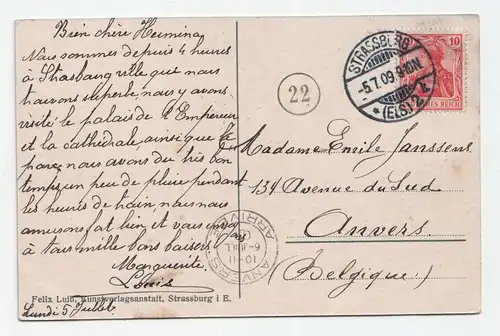 Bien chère Hermine
Nous sommes depuis 4 heures
à Strasbourg ville que nous
trouvons superbe, nous y avons
visité le palais de l'Empereur
et la cathédrale, ainsi que le
parc, nous avons du très bon
temps, un peu de pluie pendant
les heures de train nous nous
amusons fort bien et vous
à tous mille bons baisers
Marguerite
Louis
Felix Luib, Kunstverlagsanstalt, Strassburg i E.
Lundi 5 Juillet
22
STRASSBURG
-5.7.09.
* (ELS) 2
10
REICH
Madame Emile Janssens
134 Avenue du Sud
Anvers
(Belgique)
ANVERS
10-11
6 JUIL
ARRIVÉE